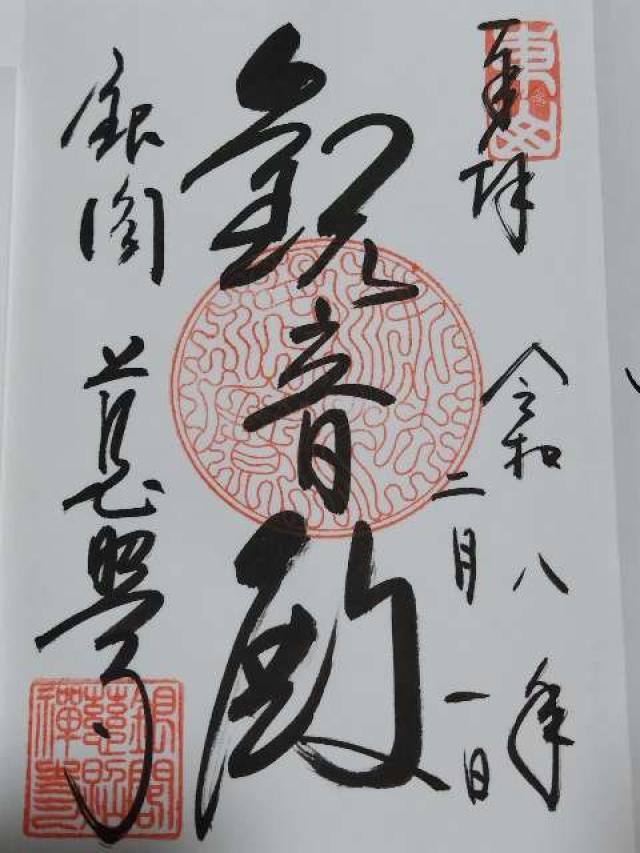 奉拝
令和八年
二月一日
観音殿
銀閣 慈照寺
東山
銀閣
慈照
禅寺